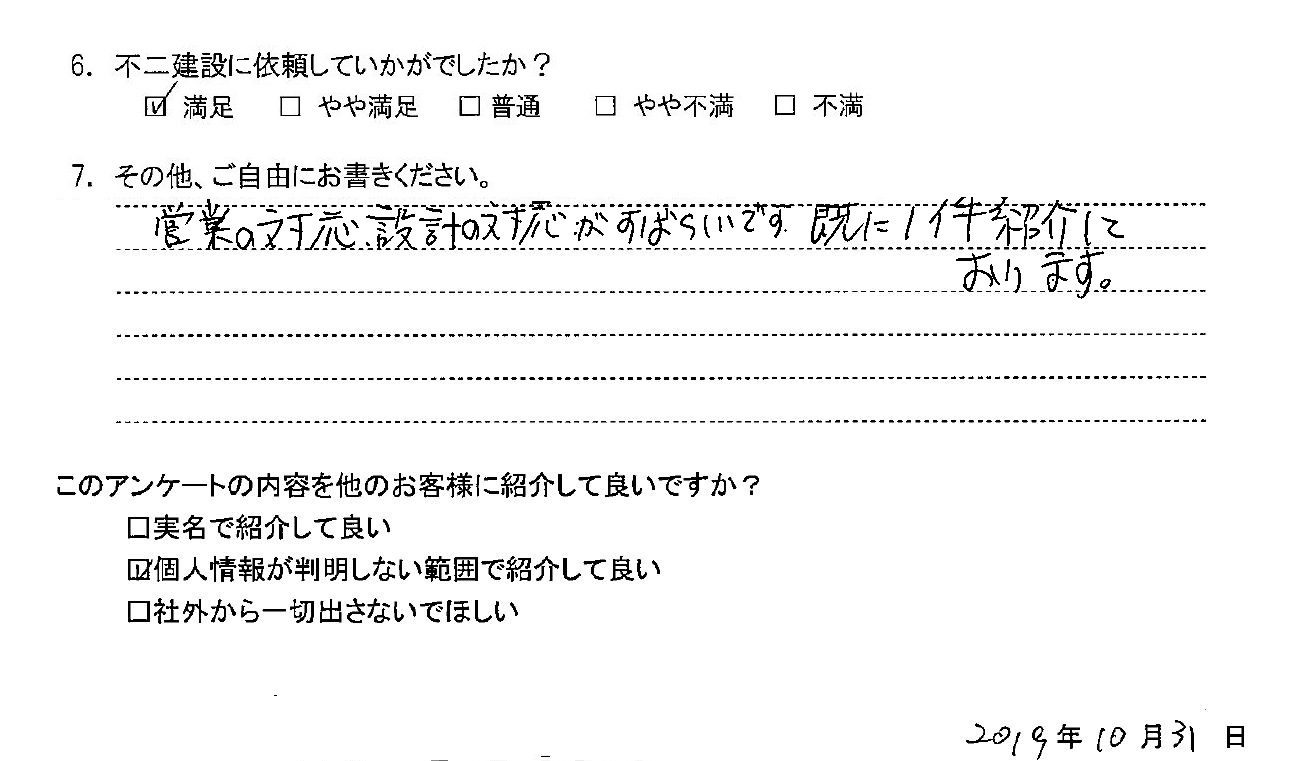 6. 不二建設に依頼していかがでしたか？
☑ 満足 □ やや満足 □ 普通 □ やや不満 □ 不満
7. その他、ご自由にお書きください。
営業の対応、設計の対応がすばらしいです 既に1件紹介して
おります。
このアンケートの内容を他のお客様に紹介して良いですか？
□実名で紹介して良い
☑個人情報が判明しない範囲で紹介して良い
□社外から一切出さないでほしい
2019年10月31日